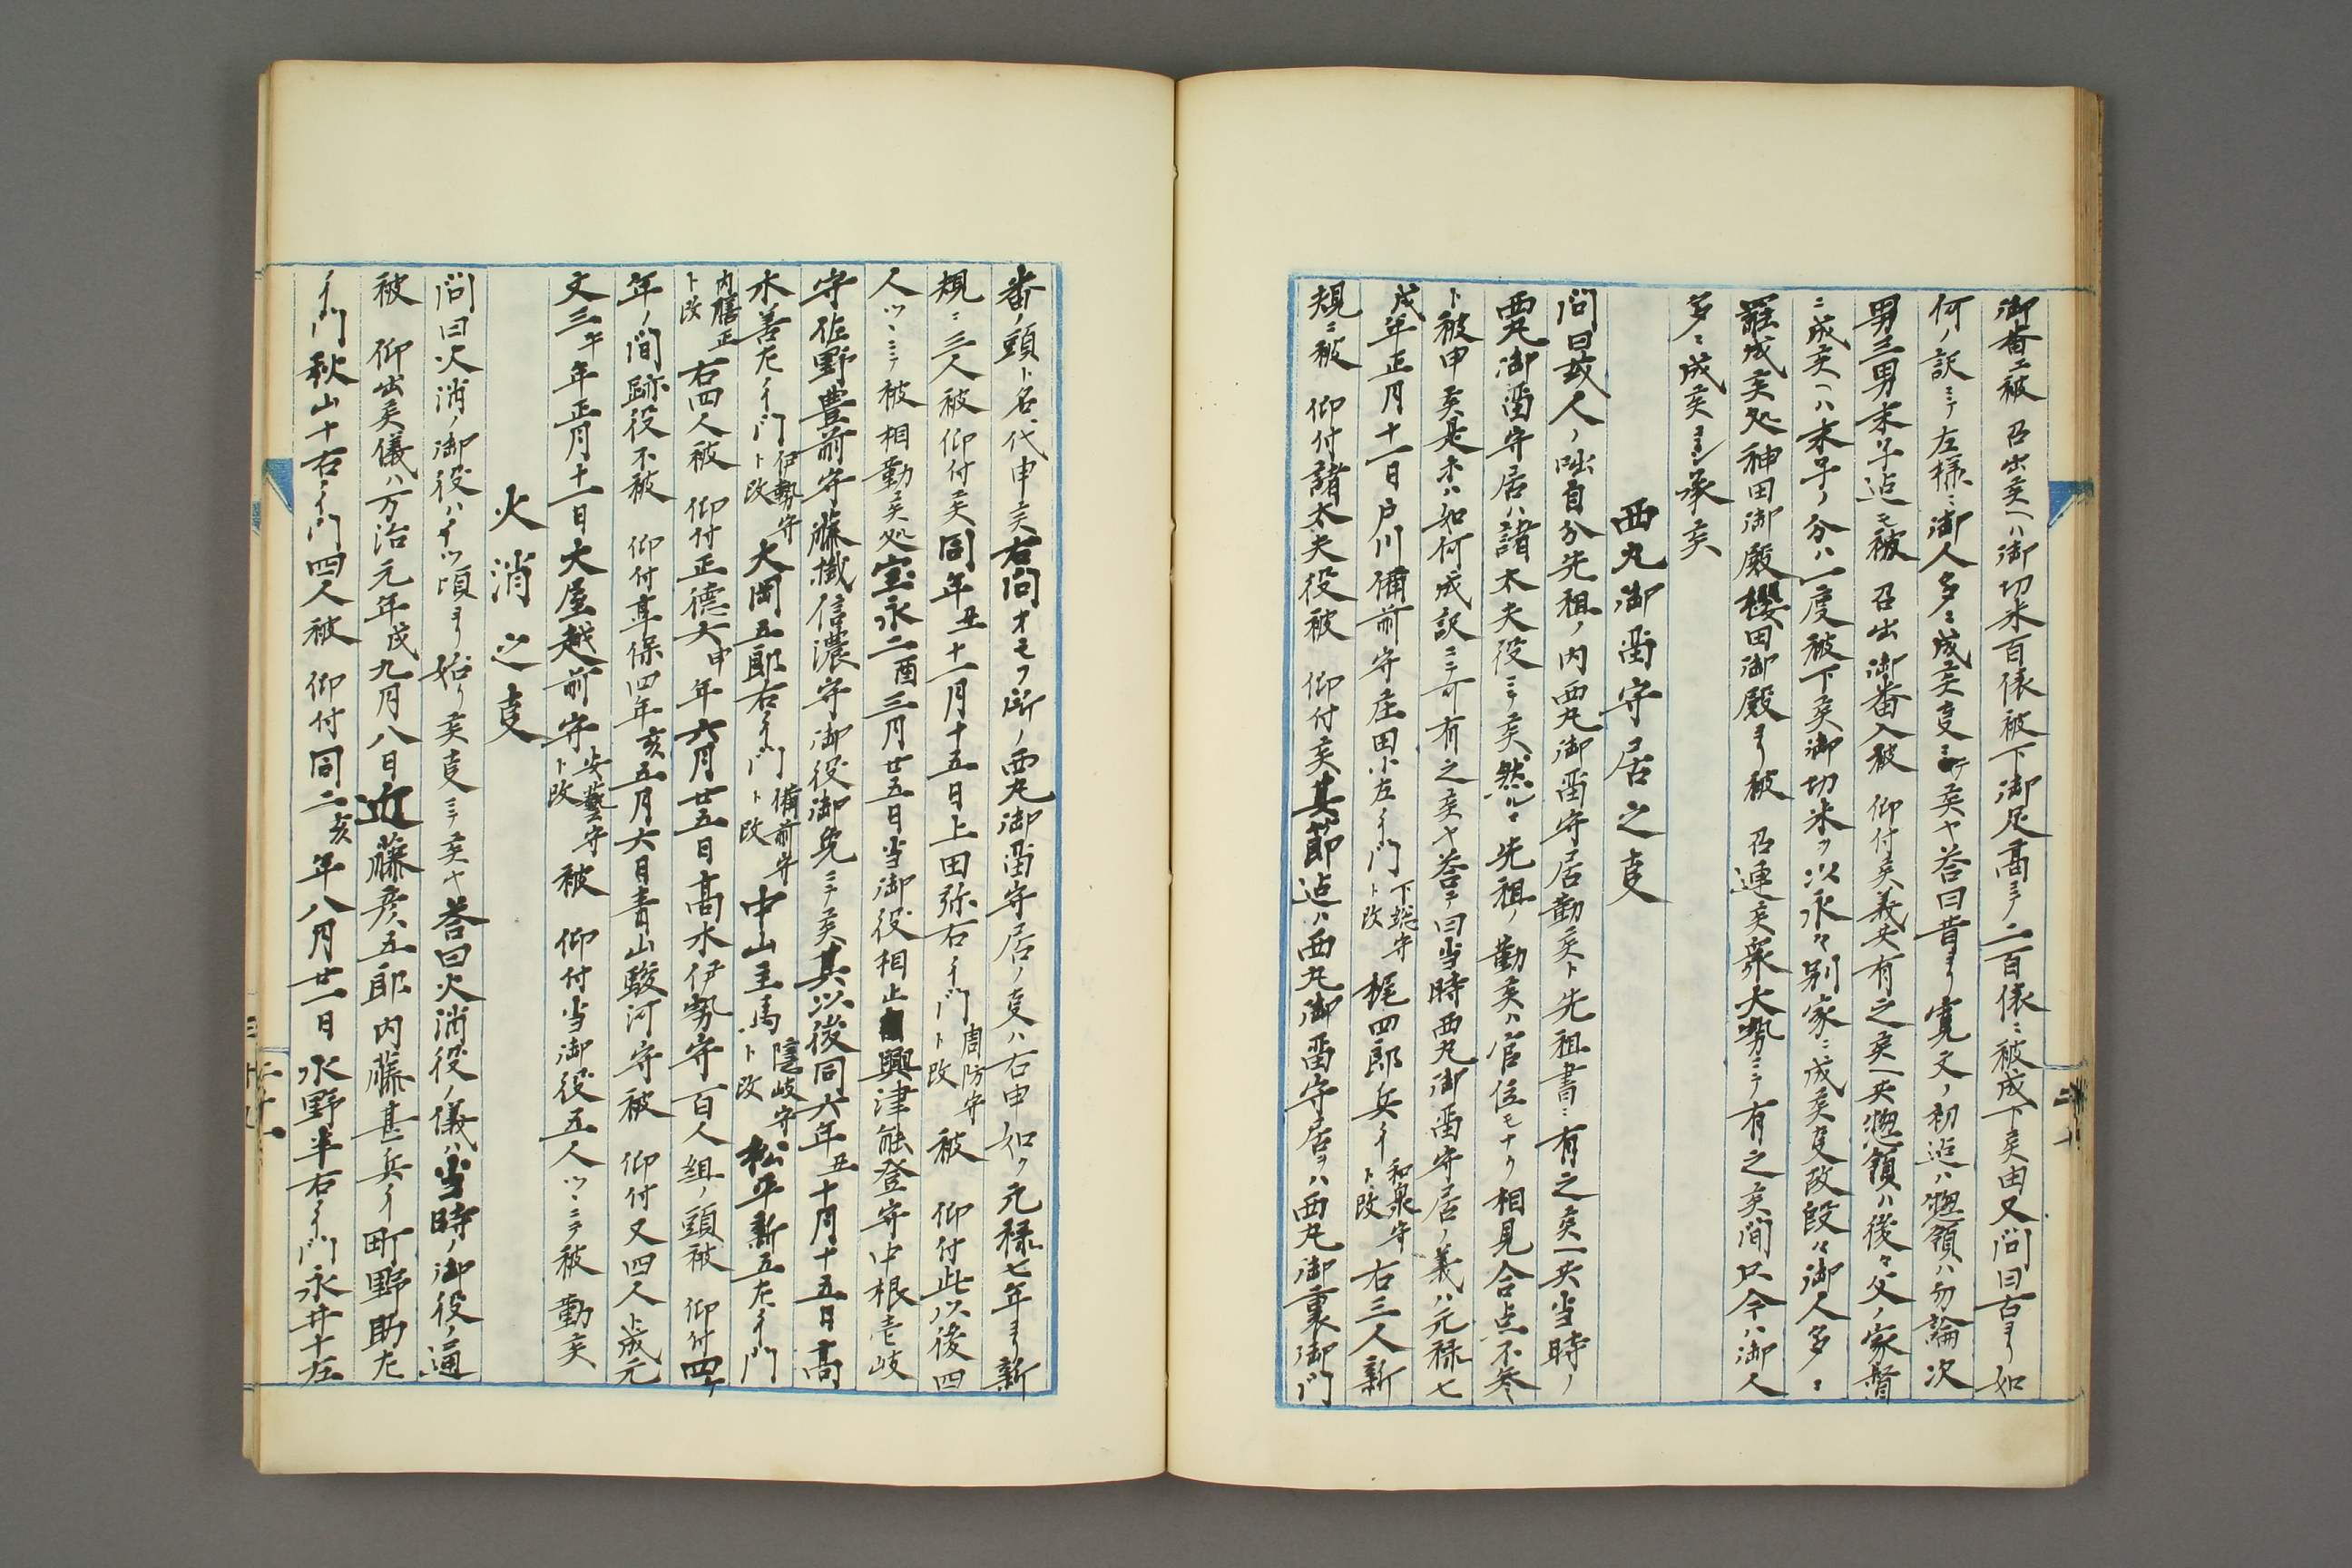 御番エ被 召出矦ヘハ御切米百俵被下御足高ニテ二百俵ニ被成下矦由又問曰古ヨリ如
何ノ訳ニテ左様ニ御人多ニ成矦叓ニテ矦ヤ答曰昔ヨリ寛文ノ初迠ハ惣領ハ勿論次
男三男末子迠モ被 召出御番入被 仰付矦義共有之矦ヘ共惣領ハ後々父ノ家督
ニ成矦ヘハ末子ノ分ハ一度被下矦御切米ヲ以永々別家ニ成矦叓故段々御人多ニ
罷成矦処神田御殿櫻田御殿ヨリ被 召連矦衆大勢ニテ有之矦間只今ハ御人
多ニ成矦ヨシ承矦
西丸御畱守居之叓
問曰或人ノ咄自分先祖ノ内西丸御畱守居勤矦ト先祖書ニ有之矦ヘ共当時ノ
西丸御畱守居ハ諸太夫役ニテ矦然ルニ先祖ノ勤矦ハ官位モナク相見合点不参
ト被申矦是ホハ如何成訳ニテ可有之矦ヤ答テ曰当時西丸御畱守居ノ義ハ元禄七
戌年正月十一日戸川備前守庄田小左ヱ門下総守ト改梶四郎兵ヱ和泉守ト改右三人新
規ニ被 仰付諸太夫役被 仰付矦其節迠ハ西丸御畱守居ヲハ西丸御裏御門
番ノ頭ト名代申矦右問オモフ所ノ西丸御畱守居ノ叓ハ右申如ク元禄七年ヨリ新
規ニ三人被 仰付矦同年丑十一月十五日上田弥右ヱ門周防守ト改被 仰付此以後四
人ツヽニテ被相勤矦処宝永二酉三月廿五日当御役相止興津能登守中根壱岐
守佐野豊前守藤掛信濃守御役御免ニテ矦其以後同六年丑十月十五日高
木善左ヱ門伊勢守ト改大岡五郎右ヱ門備前守ト改中山主馬隠岐守ト改松平新五左ヱ門
内膳正ト改右四人被 仰付正徳六申年六月廿五日高木伊勢守百人組ノ頭被 仰付四ケ
年ノ間跡役不被 仰付享保四年亥五月六日青山駿河守被 仰付又四人ト成元
文三午年正月十一日大屋越前守安藝守ト改被 仰付当御役五人ツヽニテ被勤矦
火消之叓
問曰火消ノ御役ハイツ頃ヨリ始リ矦叓ニテ矦ヤ答曰火消役ノ儀ハ当時ノ御役ノ通
被 仰出矦儀ハ万治元年戌九月八日近藤彦五郎内藤甚兵ヱ町野助左
ヱ門秋山十右ヱ門四人被 仰付同二亥年八月廿一日水野半右ヱ門永井十左